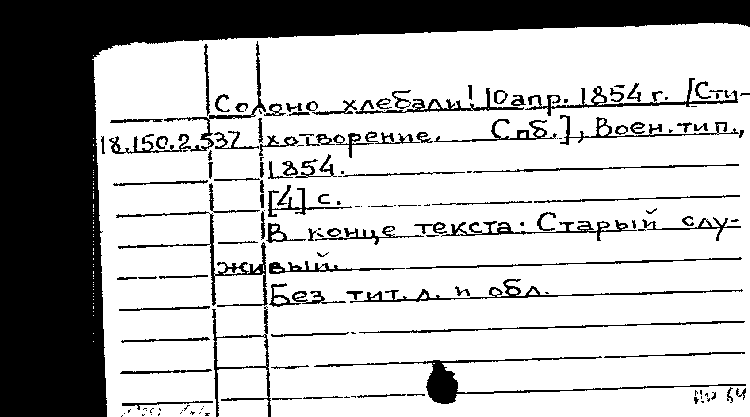 Солоно хлебали! 10 апр. 1854 г. [Сти-
18.150.2.537 хотворение. Спб.], Воен. тип.,
1854.
[4] с.
В конце текста: Старый слу-
живый.
Без тит. л. и обл.